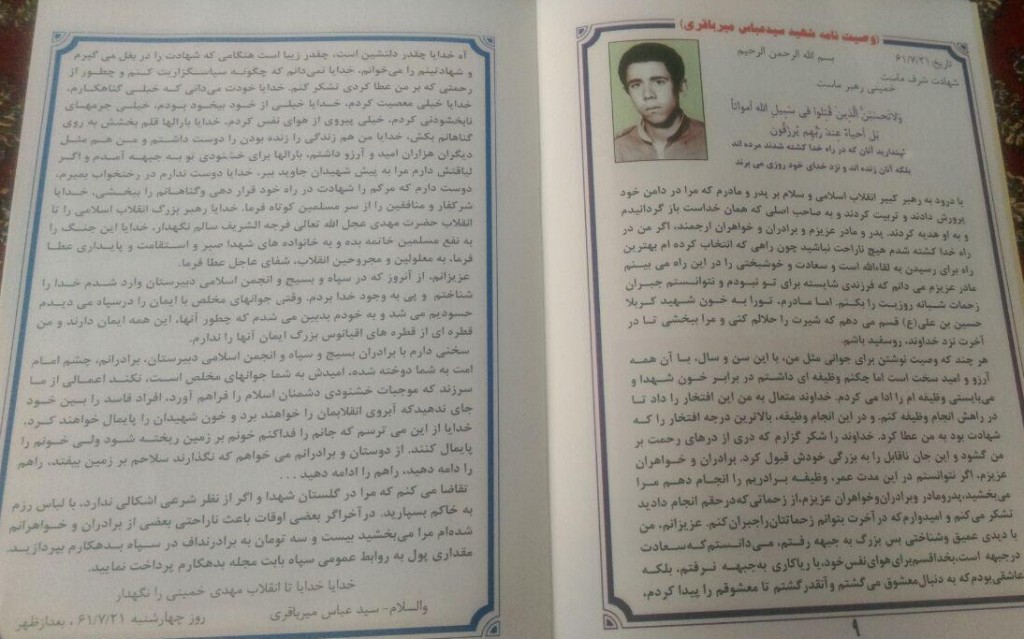 (وصیت نامه شهید سیدعباس میرباقری)
تاریخ: ۶۱/۷/۲۱
بسم الله الرحمن الرحیم
شهادت شرف ماست
خمینی رهبر ماست
وَلاتَحسَبَنَّ الَّذینَ قُتِلوا فِی سَبیلِ الله اَمواتاً
بَل اَحیاءٌ عِندَ رَبِّهِم یُرزَقون
نپندارید آنان که در راه خدا کشته شدند مرده اند
بلکه آنان زنده اند و نزد خدای خود روزی می برند
با درود به رهبر کبیر انقلاب اسلامی و سلام بر پدر و مادرم که مرا در دامن خود
پرورش دادند و تربیت کردند و به صاحب اصلی که همان خداست باز گردانیدم
و به او هدیه کردند. پدر و مادر عزیزم و برادران و خواهران ارجمند، اگر من در
راه خدا کشته شدم هیچ ناراحت نباشید چون راهی که انتخاب کرده ام بهترین
راه برای رسیدن به لقاءالله است و سعادت و خوشبختی را در این راه می بینم
مادر عزیزم می دانم که فرزندی شایسته برای تو نبودم و نتوانستم جبران
زحمات شبانه روزیت را بکنم. اما مادرم، تورا به خون شهید کربلا
حسین بن علی(ع) قسم می دهم که شیرت را حلالم کنی و مرا ببخشی تا در
آخرت نزد خداوند، روسفید باشم.
هر چند که وصیت نوشتن برای جوانی مثل من، با این سن و سال، با آن همه
آرزو و امید سخت است اما چکنم وظیفه ای داشتم در برابر خون شهدا و
می‌بایستی وظیفه ام را ادا می کردم. خداوند متعال به من این افتخار را داد تا
در راهش انجام وظیفه کنم. و در این انجام وظیفه، بالاترین درجه افتخار را که
شهادت بود به من عطا کرد. خداوند را شکر گزارم که دری از درهای رحمت بر
من گشود و این جان ناقابل را به بزرگی خودش قبول کرد. برادران و خواهران
عزیزم، اگر نتوانستم در این مدت عمر، وظیفه برادریم را انجام دهم مرا
می‌بخشید، پدرومادر وبرادران‌وخواهران عزیزم، از زحماتی که درحقم انجام دادید
تشکر می‌کنم و امیدوارم که در آخرت بتوانم زحماتتان راجبران کنم. عزیزانم، من
با دیدی عمیق وشناختی بس بزرگ به جبهه رفتم، می‌دانستم که سعادت
درجبهه است، بخداقسم برای هوای نفس خود، یا ریاکاری به‌جبهه نرفتم، بلکه
عاشقی بودم که به دنبال معشوق می‌گشتم و آنقدر گشتم تا معشوقم را پیدا کردم.
۹
آه خدایا چقدر دلنشین است، چقدر زیبا است هنگامی که شهادت را در بغل می گیرم
و شهادتینم را می‌خوانم، خدایا نمی‌دانم که چگونه سپاسگزاریت کنم و چطور از
رحمتی که بر من عطا کردی تشکر کنم. خدایا خودت می‌دانی که خیلی گناهکارم،
خدایا خیلی معصیت کردم، خدایا خیلی از خود بیخود بودم، خیلی جرمهای
نابخشودنی کردم. خیلی پیروی از هوای نفس کردم. خدایا بارالها قلم بخشش به روی
گناهانم بکش، خدایا من هم زندگی را زنده بودن را دوست داشتم و من هم مثل
دیگران هزاران امید و آرزو داشتم، بارالها برای خشنودی تو به جبهه آمدم و اگر
لیاقتش دارم مرا به پیش شهیدان جاوید ببر. خدایا دوست ندارم در رختخواب بمیرم،
دوست دارم که مرگم را شهادت در راه خود قرار دهی وگناهانم را ببخشی، خدایا
شرکفار و منافقین را از سر مسلمین کوتاه فرما. خدایا رهبر بزرگ انقلاب اسلامی را تا
انقلاب حضرت مهدی عجل الله تعالی فرجه الشریف سالم نگهدار، خدایا این جنگ را
به نفع مسلمین خاتمه بده و به خانواده های شهدا صبر و استقامت و پایداری عطا
فرما، به معلولین و مجروحین انقلاب، شفای عاجل عطا فرما.
عزیزانم، از آنروز که در سپاه و بسیج و انجمن اسلامی دبیرستان وارد شدم خدا را
شناختم و پی به وجود خدا بردم. وقتی جوانهای مخلص با ایمان را درسپاه می دیدم
حسودیم می شد و به خودم بدبین می شدم که چطور آنها، این همه ایمان دارند و من
قطره ای از قطره های اقیانوس بزرگ ایمان آنها را ندارم.
سخنی دارم با برادران بسیج و سپاه و انجمن اسلامی دبیرستان، برادرانم، چشم امام
امت به شما دوخته شده، امیدش به شما جوانهای مخلص است، نکند اعمالی از ما
سرزند که موجبات خشنودی دشمنان اسلام را فراهم آورد. افراد فاسد را بین خود
جای ندهیدکه آبروی انقلابمان را خواهند برد و خون شهیدان را پایمال خواهند کرد.
خدایا از این می ترسم که جانم را فداکنم خونم بر زمین ریخته شود ولی خونم را
پایمال کنند. از دوستان و برادرانم می خواهم که نگذارند سلاحم بر زمین بیفتد، راهم
را دامه دهید، راهم را ادامه دهید ...
تقاضا می کنم که مرا در گلستان شهدا و اگر از نظر شرعی اشکالی ندارد، با لباس رزم
به خاکم بسپارید. درآخراگر بعضی اوقات باعث ناراحتی بعضی از برادران و خواهرانم
شده‌ام مرا می‌بخشید بیست و سه تومان به برادرنداف در سپاه بدهکارم بپردازید.
مقداری پول به روابط عمومی سپاه بابت مجله بدهکارم پرداخت نمایید.
خدایا خدایا تا انقلاب مهدی خمینی را نگهدار
والسلام- سید عباس میرباقری
روز چهارشنبه ۶۱/۷/۲۱ ، بعدازظهر